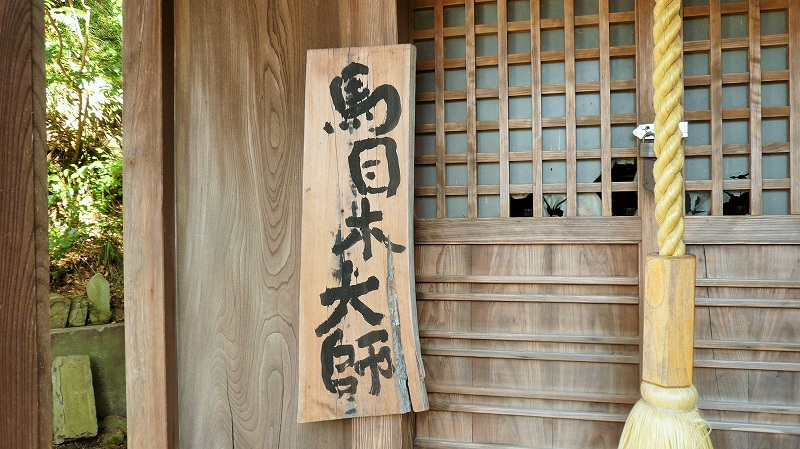 馬目木大師